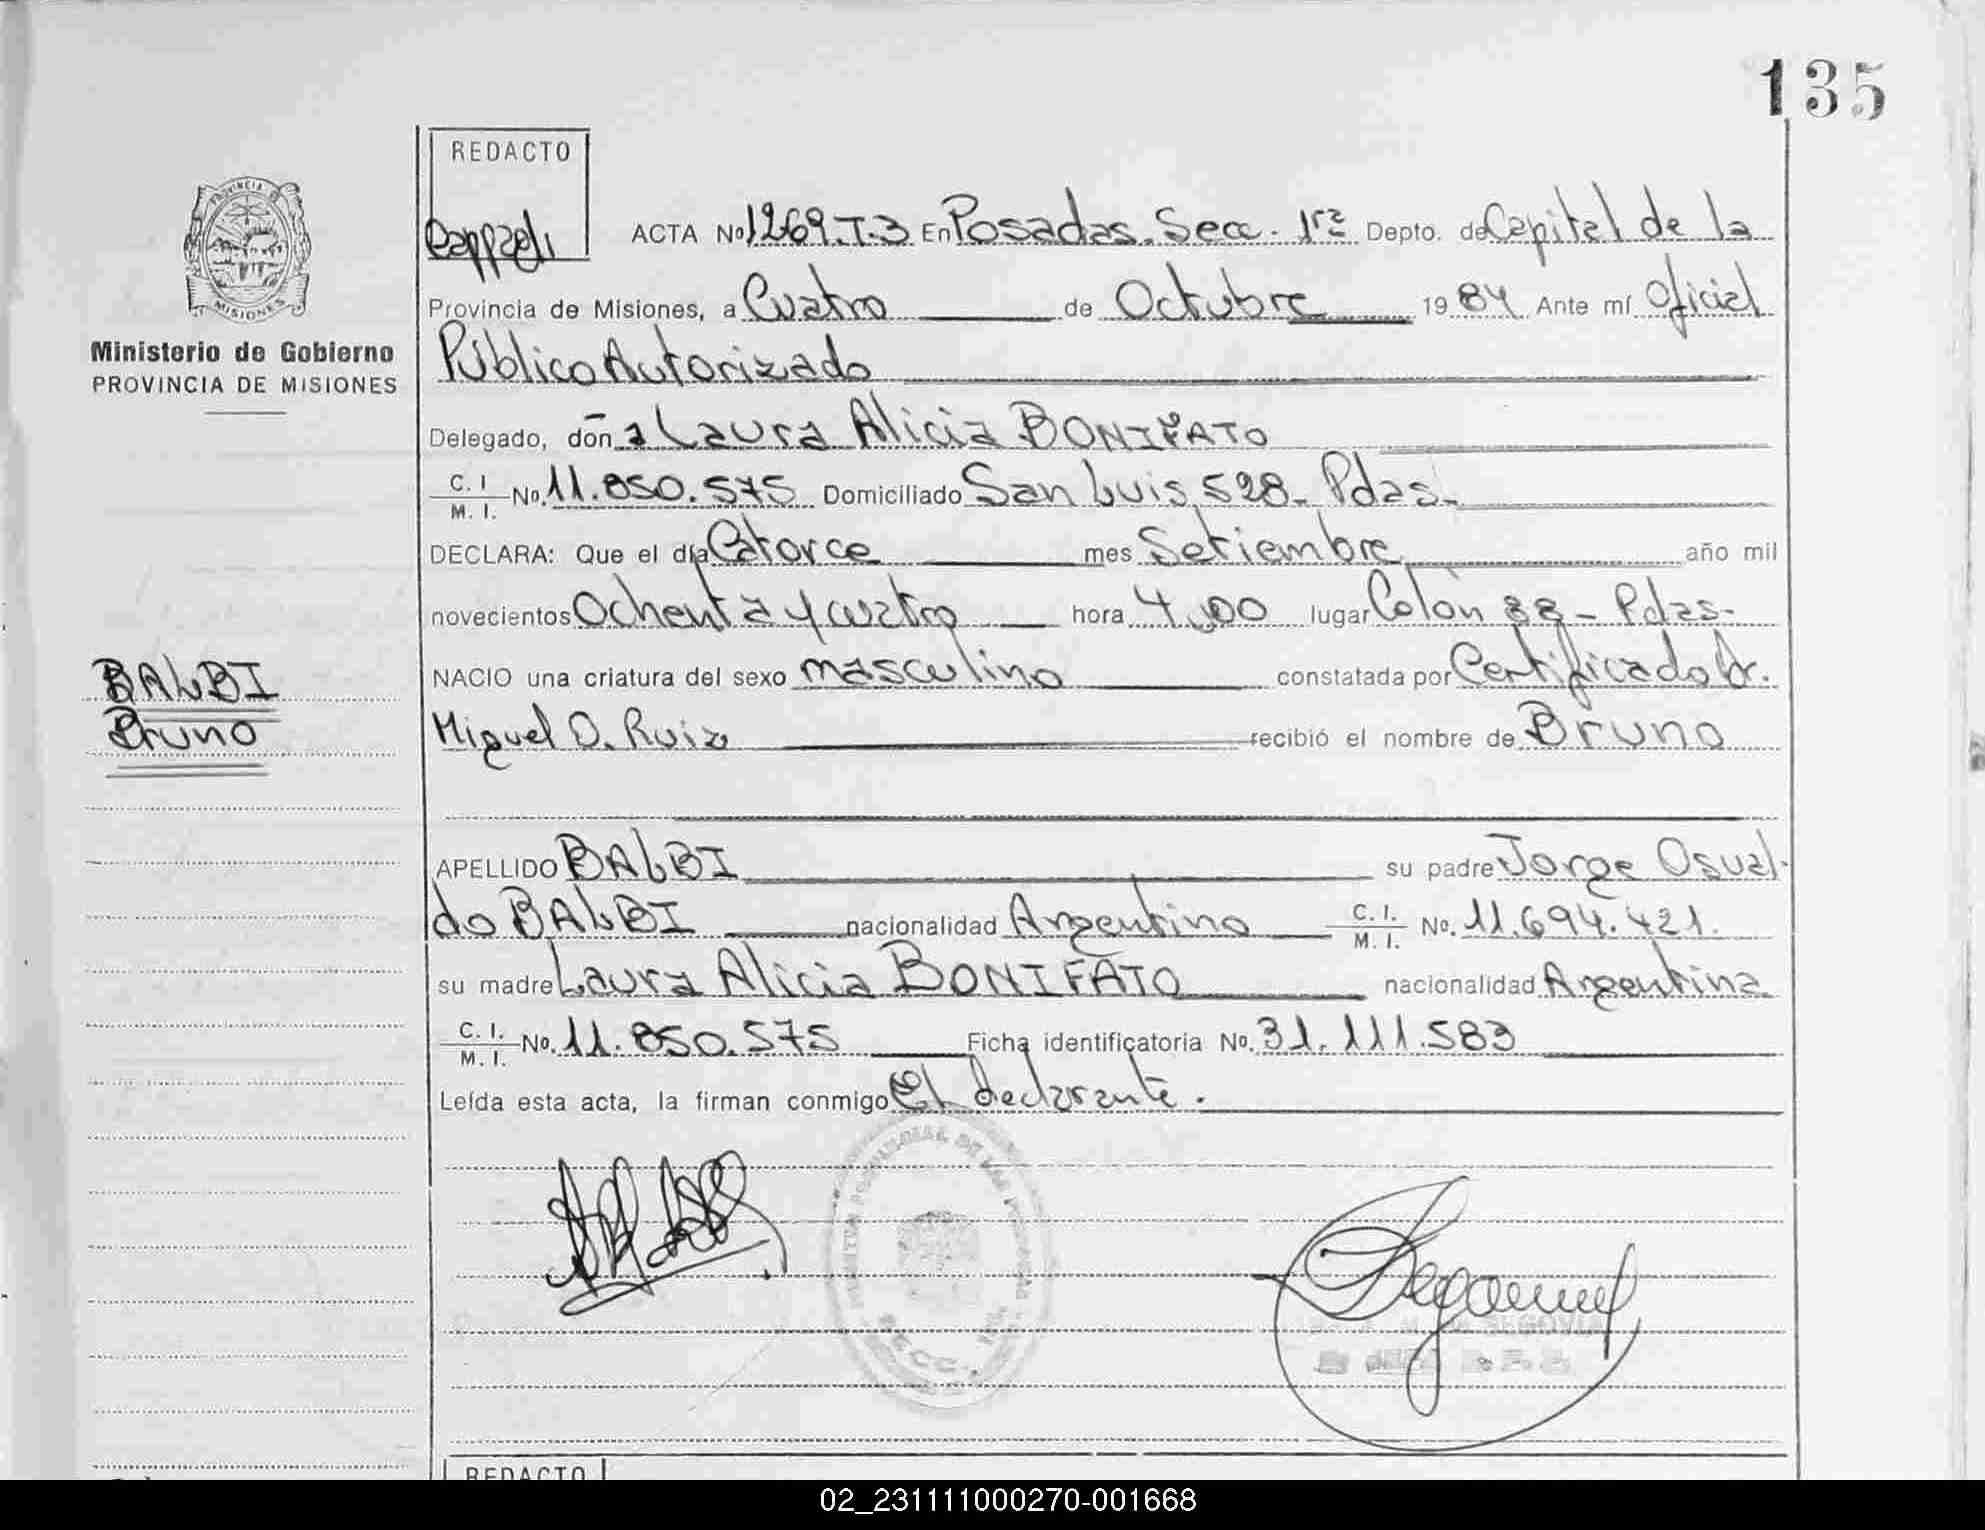 135
REDACTO
ACTA Nº 1269.T.3 En Posadas. Secc. 1ra Depto. de Capital de la
Provincia de Misiones, a Cuatro de Octubre 1984 Ante mí Oficial
Público Autorizado
Delegado, doña Laura Alicia BONIFATO
C. I. M. I. No. 11.850.575 Domiciliado San Luis 528 - Pdas-
DECLARA: Que el día Catorce mes Setiembre año mil
novecientos Ochenta y cuatro hora 4,00 lugar Colón 88 - Pdas-
NACIO una criatura del sexo masculino constatada por Certificado Dr.
Miguel O. Ruiz recibió el nombre de Bruno
APELLIDO BALBI su padre Jorge Osval-
do BALBI nacionalidad Argentino C. I. M. I. No. 11.694.421.
su madre Laura Alicia BONIFATO nacionalidad Argentina
C. I. M. I. No. 11.850.575 Ficha identificatoria No. 31.111.583
Leída esta acta, la firman conmigo El declarante.
PROVINCIA DE
MISIONES
Ministerio de Gobierno
PROVINCIA DE MISIONES
BALBI
Bruno
SEGOVIA
SECC. 1ra
REDACTO
02_231111000270-001668